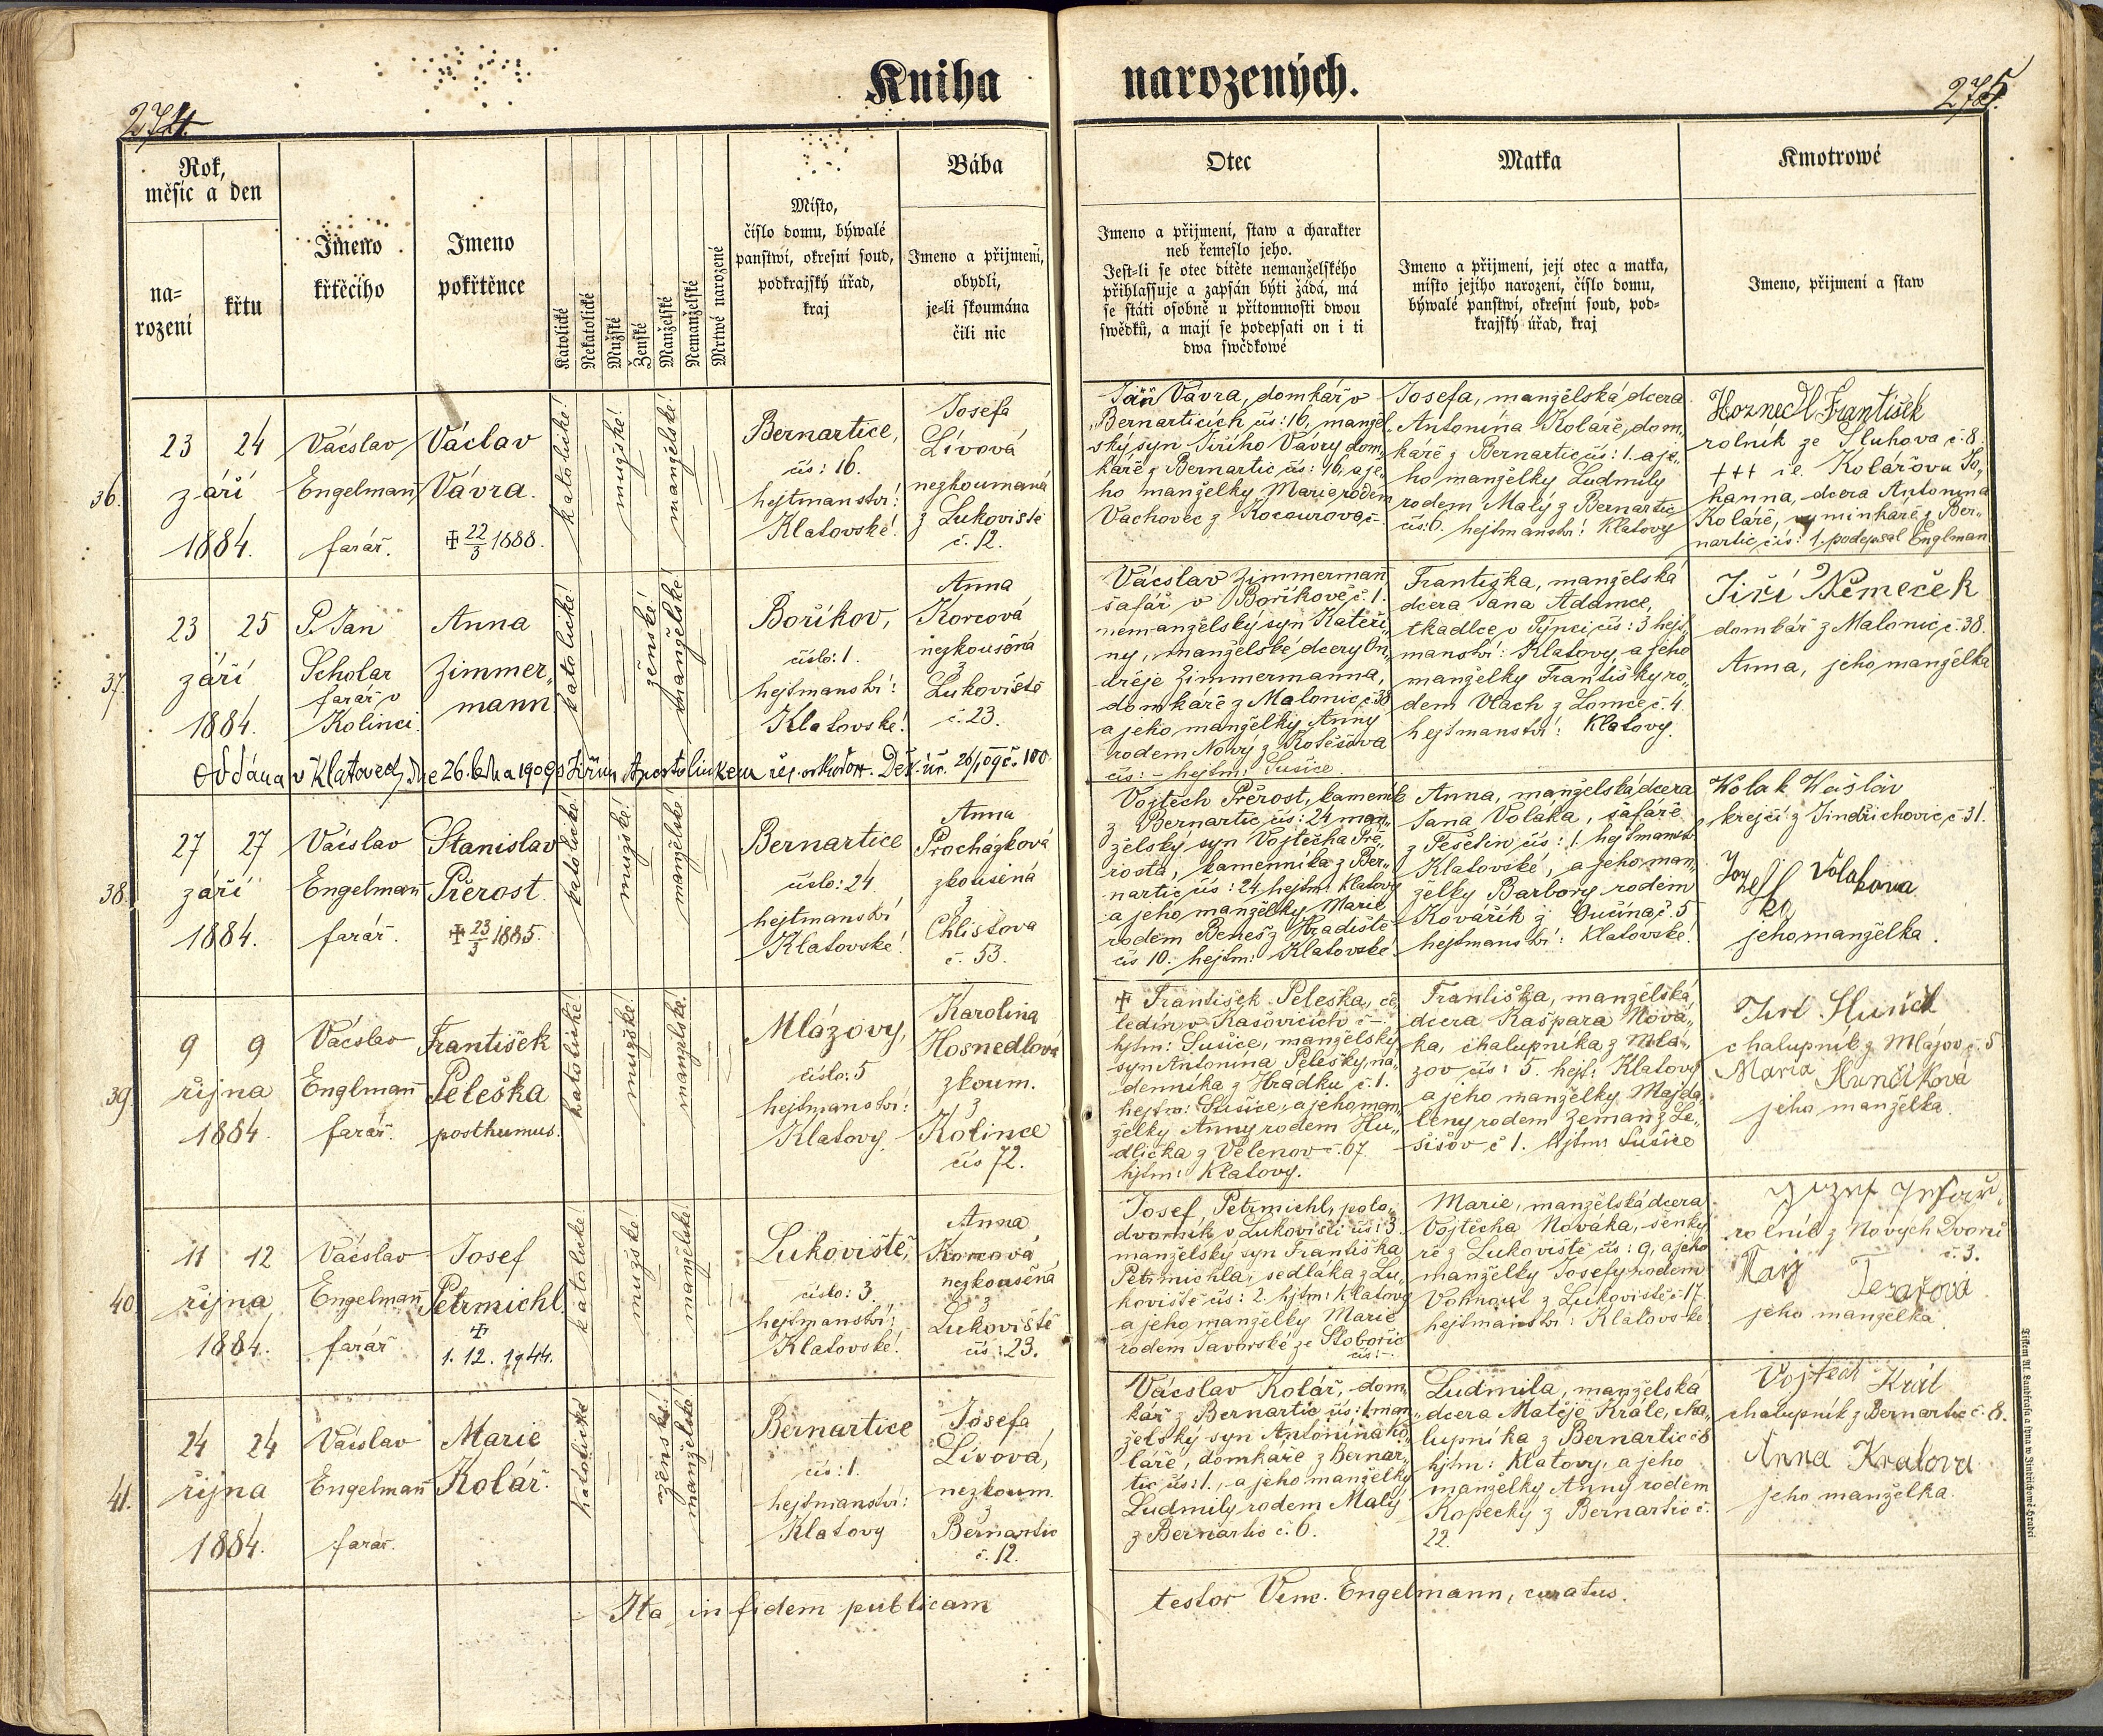 Kniha narozených.
274.
275.
Rok,
měsíc a den
na=
rození
křtu
Jmeno
křtěcího
Jmeno
pokřtěnce
Katolické
Nekatolické
Mužské
Ženské
Manželské
Nemanželské
Mrtwé narozené
Místo,
číslo domu, býwalé
panstwí, okresní soud,
podkrajský úřad,
kraj
Bába
Jmeno a přijmení,
obydlí,
je-li zkoumána
čili nic
Otec
Jmeno a přijmení, staw a charakter
neb řemeslo jeho.
Jest=li se otec dítěte nemanželského
přihlassuje a zapsán býti žádá, má
se státi osobně u přítomnosti dwou
swědků, a mají se podepsati on i ti
dwa swědkowé
Matka
Jmeno a přijmení, její otec a matka,
místo jejího narození, číslo domu,
býwalé panstwí, okresní soud, pod=
krajský úřad, kraj
Kmotrowé
Jmeno, přijmení a staw
36.
23 24
září
1884.
Vácslav
Engelmann
farář.
Václav
Vávra.
✠ 22/3 1888.
katolické!
mužské!
manželské!
Bernartice,
čís: 16.
hejtmanství:
Klatovské!
Josefa
Lívová
nezkoumaná
z Lukoviště
č. 12.
Jan Vávra, domkář v
Bernarticích čís: 16, manžel„
ský syn Jiřího Vávry dom„
káře z Bernartic čís: 16, a je„
ho manželky Marie rodem
Vachovec z Kocourova č.
Josefa, manželská dcera
Antonína Koláře, dom„
káře z Bernartic čís: 1. a je„
ho manželky Ludmily
rodem Malý z Bernartic
čís: 6. hejtmanství: Klatovy
František
rolník ze Sluhova č. 8.
+++ Kolářova Jo„
hanna, dcera Antonína
Koláře, vyminkáře z Ber„
nartic, čís: 1. podepsal Englman
37.
23 25
září
1884.
P. Jan
Scholar
farář v
Kolinci.
Anna
Zimmer„
mann.
katolické!
ženské!
manželské!
Boříkov,
číslo: 1.
hejtmanství:
Klatovské!
Anna
Korcová
nezkoušená
z
Lukoviště
č. 23.
Vácslav Zimmermann,
šafář v Boříkově č. 1.
nemanželský syn Kateři„
ny, manželské dcery On„
dřeje Zimmermanna,
domkáře z Malonic, č. 38
a jeho manželky Anny
rodem Nový z Kotěšova
čís: – hejtm: Sušice.
Františka, manželská
dcera Jana Adamce,
tkadlce v Týnci čís: 3 hejt„
manství: Klatovy, a jeho
manželky Františky ro„
dem Vlach z Lomce č. 4.
hejtmanství: Klatovy.
Jiří Němeček
domkář z Malonic, č. 38.
Anna, jeho manželka
Oddána v Klatovech dne 26. 1909 s Jiřím Apostolinkem
38.
27 27
září
1884.
Vácslav
Engelmann
farář.
Stanislav
Přerost.
✠ 23/3 1885.
katolické!
mužské!
manželské!
Bernartice
číslo: 24.
hejtmanství
Klatovské!
Anna
Procházková
zkoušená
z
Chlistova
č. 53.
Vojtěch Přerost, kameník
z Bernartic čís: 24 man„
želský syn Vojtěcha Pře„
rosta, kamenníka z Ber„
nartic čís: 24, hejtm: Klatovy
a jeho manželky Marie
rodem Beneš z Hradiště
čís 10. hejtm: Klatovské!
Anna, manželská dcera
Jana Voláka, šafáře
z Tešetin čís: 1. hejtmanst.
Klatovské, a jeho man„
želky Barbory rodem
Kovářík z Dučína č. 5
hejtmanství: Klatovské!
Kolak
krejčí z Jindřichovic, č 31.
Volakova
jeho manželka.
39.
9 9
října
1884.
Vácslav
Englmann
farář.
František
Peleška
posthumus.
katolické!
mužské!
manželské!
Mlázovy,
číslo: 5
hejtmanství:
Klatovy.
Karolina
Hosnedlová
zkoum.
z
Kolince
čís 72.
✠ František Peleška, če„
ledín v Kašovicích č –.
hjtm: Sušice, manželský
syn Antonína Pelešky, ná„
denníka z Hrádku, č. 1.
hejtm: Sušice, a jeho man„
želky Anny rodem Hu„
dlička z Velenov č. 67.
hjtm: Klatovy.
Františka, manželská
dcera Kašpara Nová„
ka, chalupníka z Mlá„
zov čís: 5. hejt: Klatovy
a jeho manželky Majda„
leny rodem Zeman z Le„
šišov č 1. hjtm: Sušice
chalupník z Mlázov, č. 5
Maria Hunčíková
jeho manželka.
40.
11 12
října
1884.
Vácslav
Engelmann
farář
Josef
Petrmichl.
✠
1. 12. 1944.
katolické!
mužské!
manželské!
Lukoviště,
číslo: 3.
hejtmanství:
Klatovské!
Anna
Korcová
nezkoušená
z
Lukoviště
čís: 23.
Josef Petrmichl, polo„
dvorník v Lukovišti čís: 3.
manželský syn Františka
Petrmichla, sedláka z Lu„
koviště čís: 2. hjtm: Klatovy
a jeho manželky Marie
rodem Javorské ze Slobořic
čís: –.
Marie, manželská dcera
Vojtěcha Nováka, šenký
ře z Lukoviště čís: 9, a jeho
manželky Josefy rodem
Vohnout z Lukoviště č. 17.
hejtmanství: Klatovské!
rolník z Nových Dvorů
č. 3.
jeho manželka.
41.
24 24
října
1884.
Vácslav
Engelmann
farář.
Marie
Kolář.
katolické
ženské!
manželské
Bernartice
čís: 1.
hejtmanství:
Klatovy
Josefa
Lívová,
nezkoum.
z
Bernartic
č. 12.
Vácslav Kolář, dom„
kář z Bernartic čís: 1. man„
želský syn Antonína Ko„
láře, domkáře z Bernar„
tic čís: 1., a jeho manželky
Ludmily rodem Malý
z Bernartic č. 6.
Ludmila, manželská
dcera Matěje Krále, cha„
lupníka z Bernartic č 8
hjtm: Klatovy, a jeho
manželky Anny rodem
Kopecký z Bernartic č.
22.
Vojtech Král
chalupník z Bernartic č. 8.
Anna Kralova
jeho manželka.
Ita in fidem publicam
testor Venc. Engelmann, curatus.